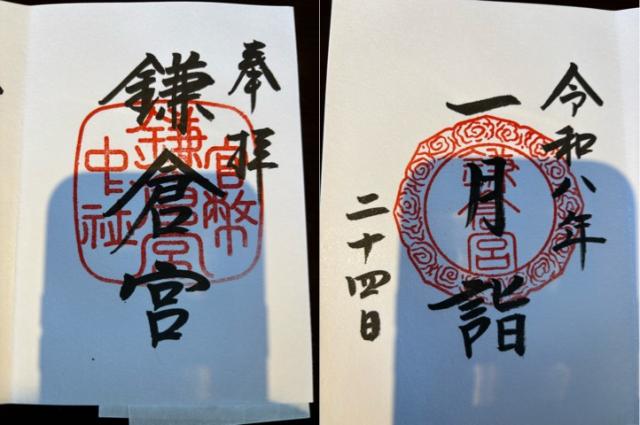 奉拝
鎌倉宮
官幣
鎌倉宮
中社
令和八年
一月詣
鎌倉宮
二十四日